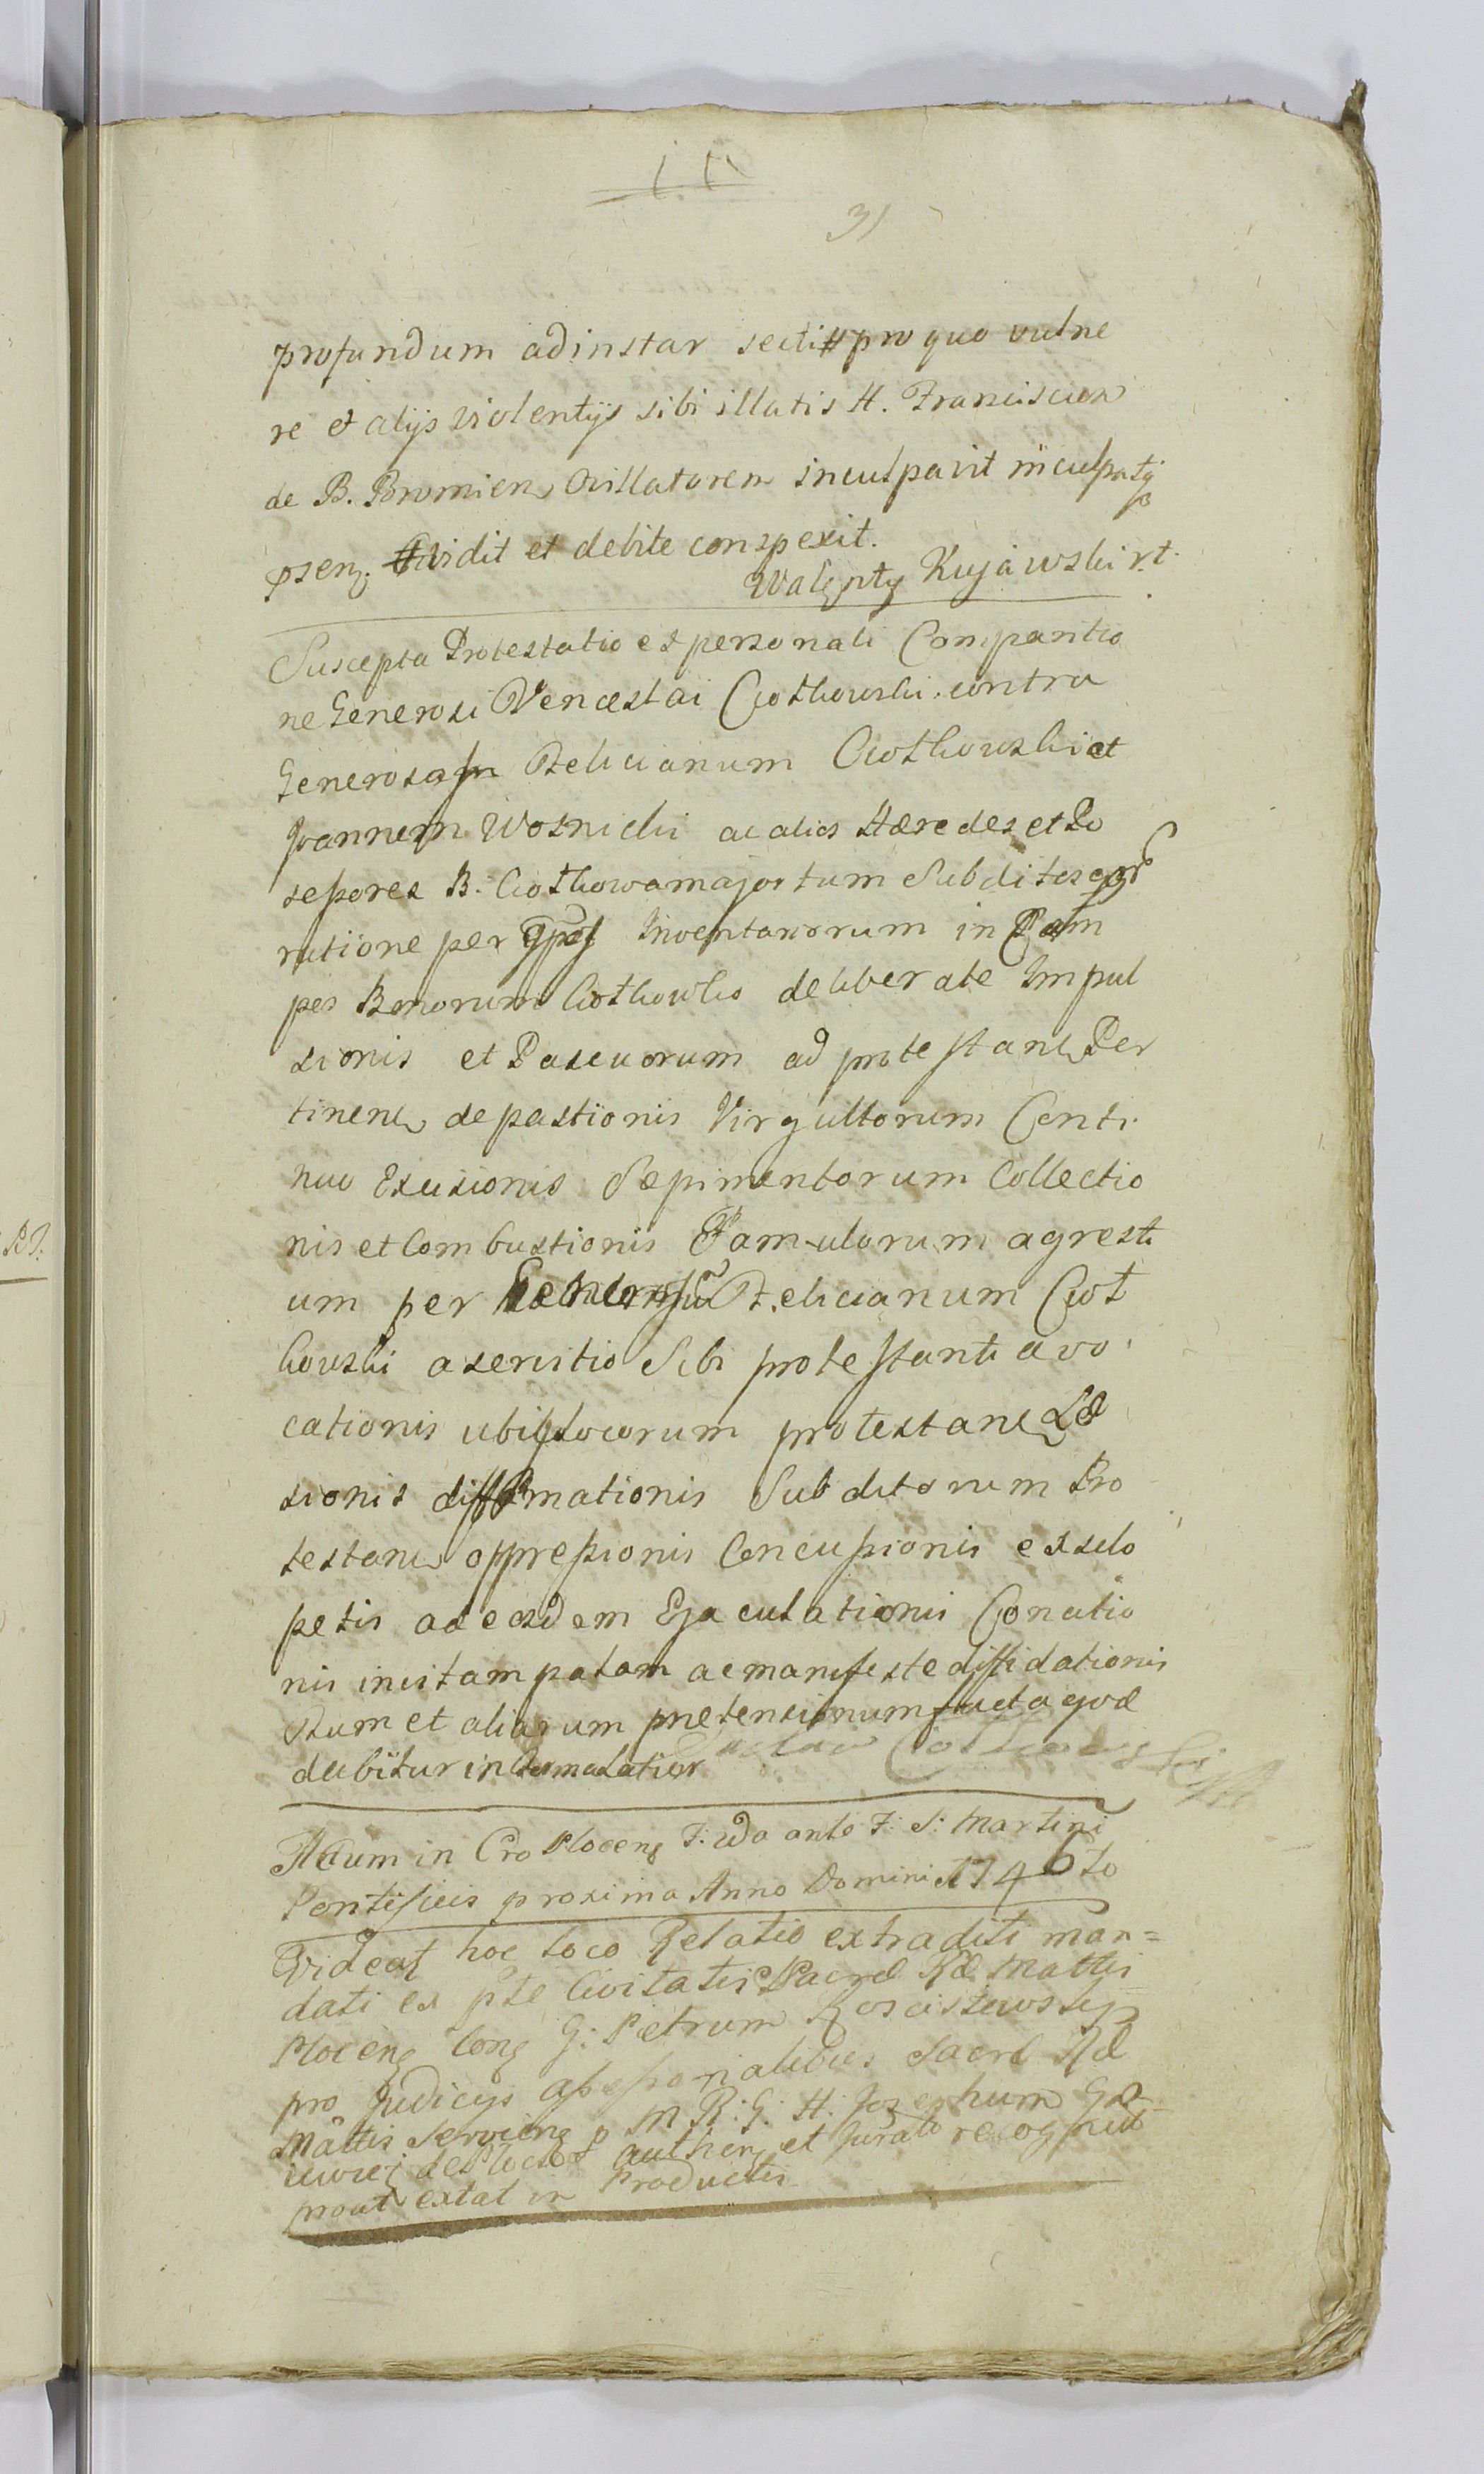 31
profundum ad instar secti pro quo vulne
re et alijs violentijs sibi illatis H. Franciscum
de B. Bromien Ovillatorem inculpavit inculpatq
psen. vidit et debite conspexit.
Walenty Kujawski r.t.
Suscepta Protestatio ex personali Comparitio
ne Generosi Venceslai Ciołkowski contra
Generosum Felicianum Ciołkowski et
Joannem Wosnicki ac alios Hæredes et Po
sessores B. Ciołkowa major tum Subditos
ratione per Inventariorum in
per Bonorum Ciołkowko deliberate Impul
sionis et Pascuorum ad protestan Per
tinen depastionis Virgultorum Conti
nuo Excisionis Sæpimentorum Collectio
nis et Combustionis Famulorum agresti
um per Felicianum Cioł
kowski a servitio Sibi protestanti avo
cationis ubi locorum protestan Læ
sionis diffamationis Subditorum Pro
testan oppressionis Concussionis ex sclo
petis ad eosdem Ejaculationis Conatio
nis in vitam palam ac manifeste diffidationis
et aliarum prætensionum facta quæ
dabitur in latior
Wacław Ciołkowski
Actum in Cro Plocen F: 2da ante F: S: Martini
Pontificis proxima Anno Domini 1746to
Videat hoc loco Relatio extraditi man=
dati ex pte Civitatis Sacræ Ræ Mattis
Plocen Con G: Petrum Kosciszewski
pro Judicijs assessorialibus Sacræ Ræ
Mattis Servien p M R: G: H. Josephum
de authen et jurato recognit
prout extat in Productis